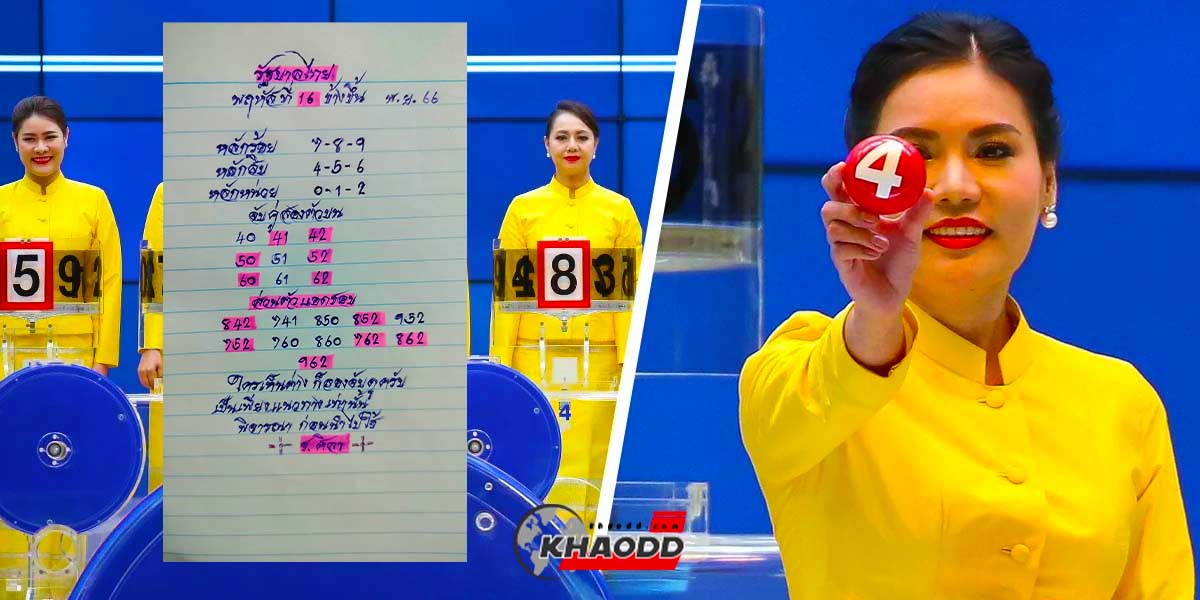 รัฐบาลไทย
พฤหัสที่ 16 ข้างขึ้น พ.ย. 66
หลักร้อย 7-8-9
หลักสิบ 4-5-6
หลักหน่วย 0-1-2
จับคู่สองตัวบน
40 41 42
50 51 52
60 61 62
ส่วนตัวแอดชอบ
842 741 850 852 952
752 760 860 762 862
962
ใครเห็นต่าง ก็ลองจับดูครับ
เป็นเพียงแนวทางเท่านั้น
พิจารณา ก่อนนำไปใช้
5 9 2
4 8 3
4
4
khaodd.com
KHAODD